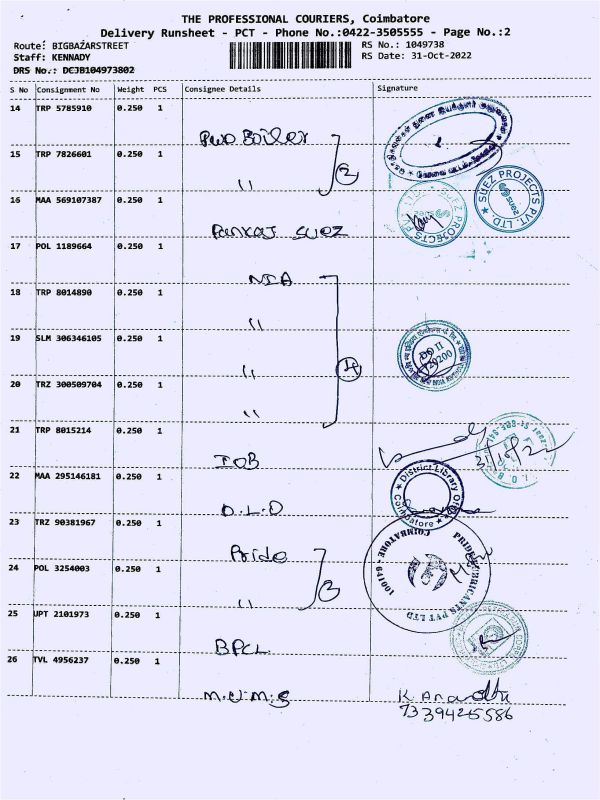 THE PROFESSIONAL COURIERS, Coimbatore
Delivery Runsheet - PCT - Phone No.:0422-3505555 - Page No.:2
Route: BIGBAZARSTREET
RS No.: 1049738
Staff: KENNADY
RS Date: 31-Oct-2022
DRS No.: DCJB104973802
S No Consignment No Weight PCS Consignee Details Signature
14 TRP 5785910 0.250 1
PWD Boiler
15 TRP 7826601 0.250 1
" 2
16 MAA 569107387 0.250 1
SUEZ PROJECTS PVT. LTD
SUEZ PROJECTS PVT. LTD
suez
Pankaj SUEZ
17 POL 1189664 0.250 1
NIA
18 TRP 8014890 0.250 1
"
19 SLM 306346105 0.250 1
DO II
" 4
20 TRZ 300509704 0.250 1
"
21 TRP 8015214 0.250 1
IOB
31/10/22
22 MAA 295146181 0.250 1
District Library Coimbatore
D.L.O
23 TRZ 90381967 0.250 1
Pride
24 POL 3254003 0.250 1
PRIDE LUBRICANTS PVT LTD
COIMBATORE
"
25 UPT 2101973 0.250 1
BPCL
26 TVL 4956237 0.250 1
M.U.M.S
7339425586